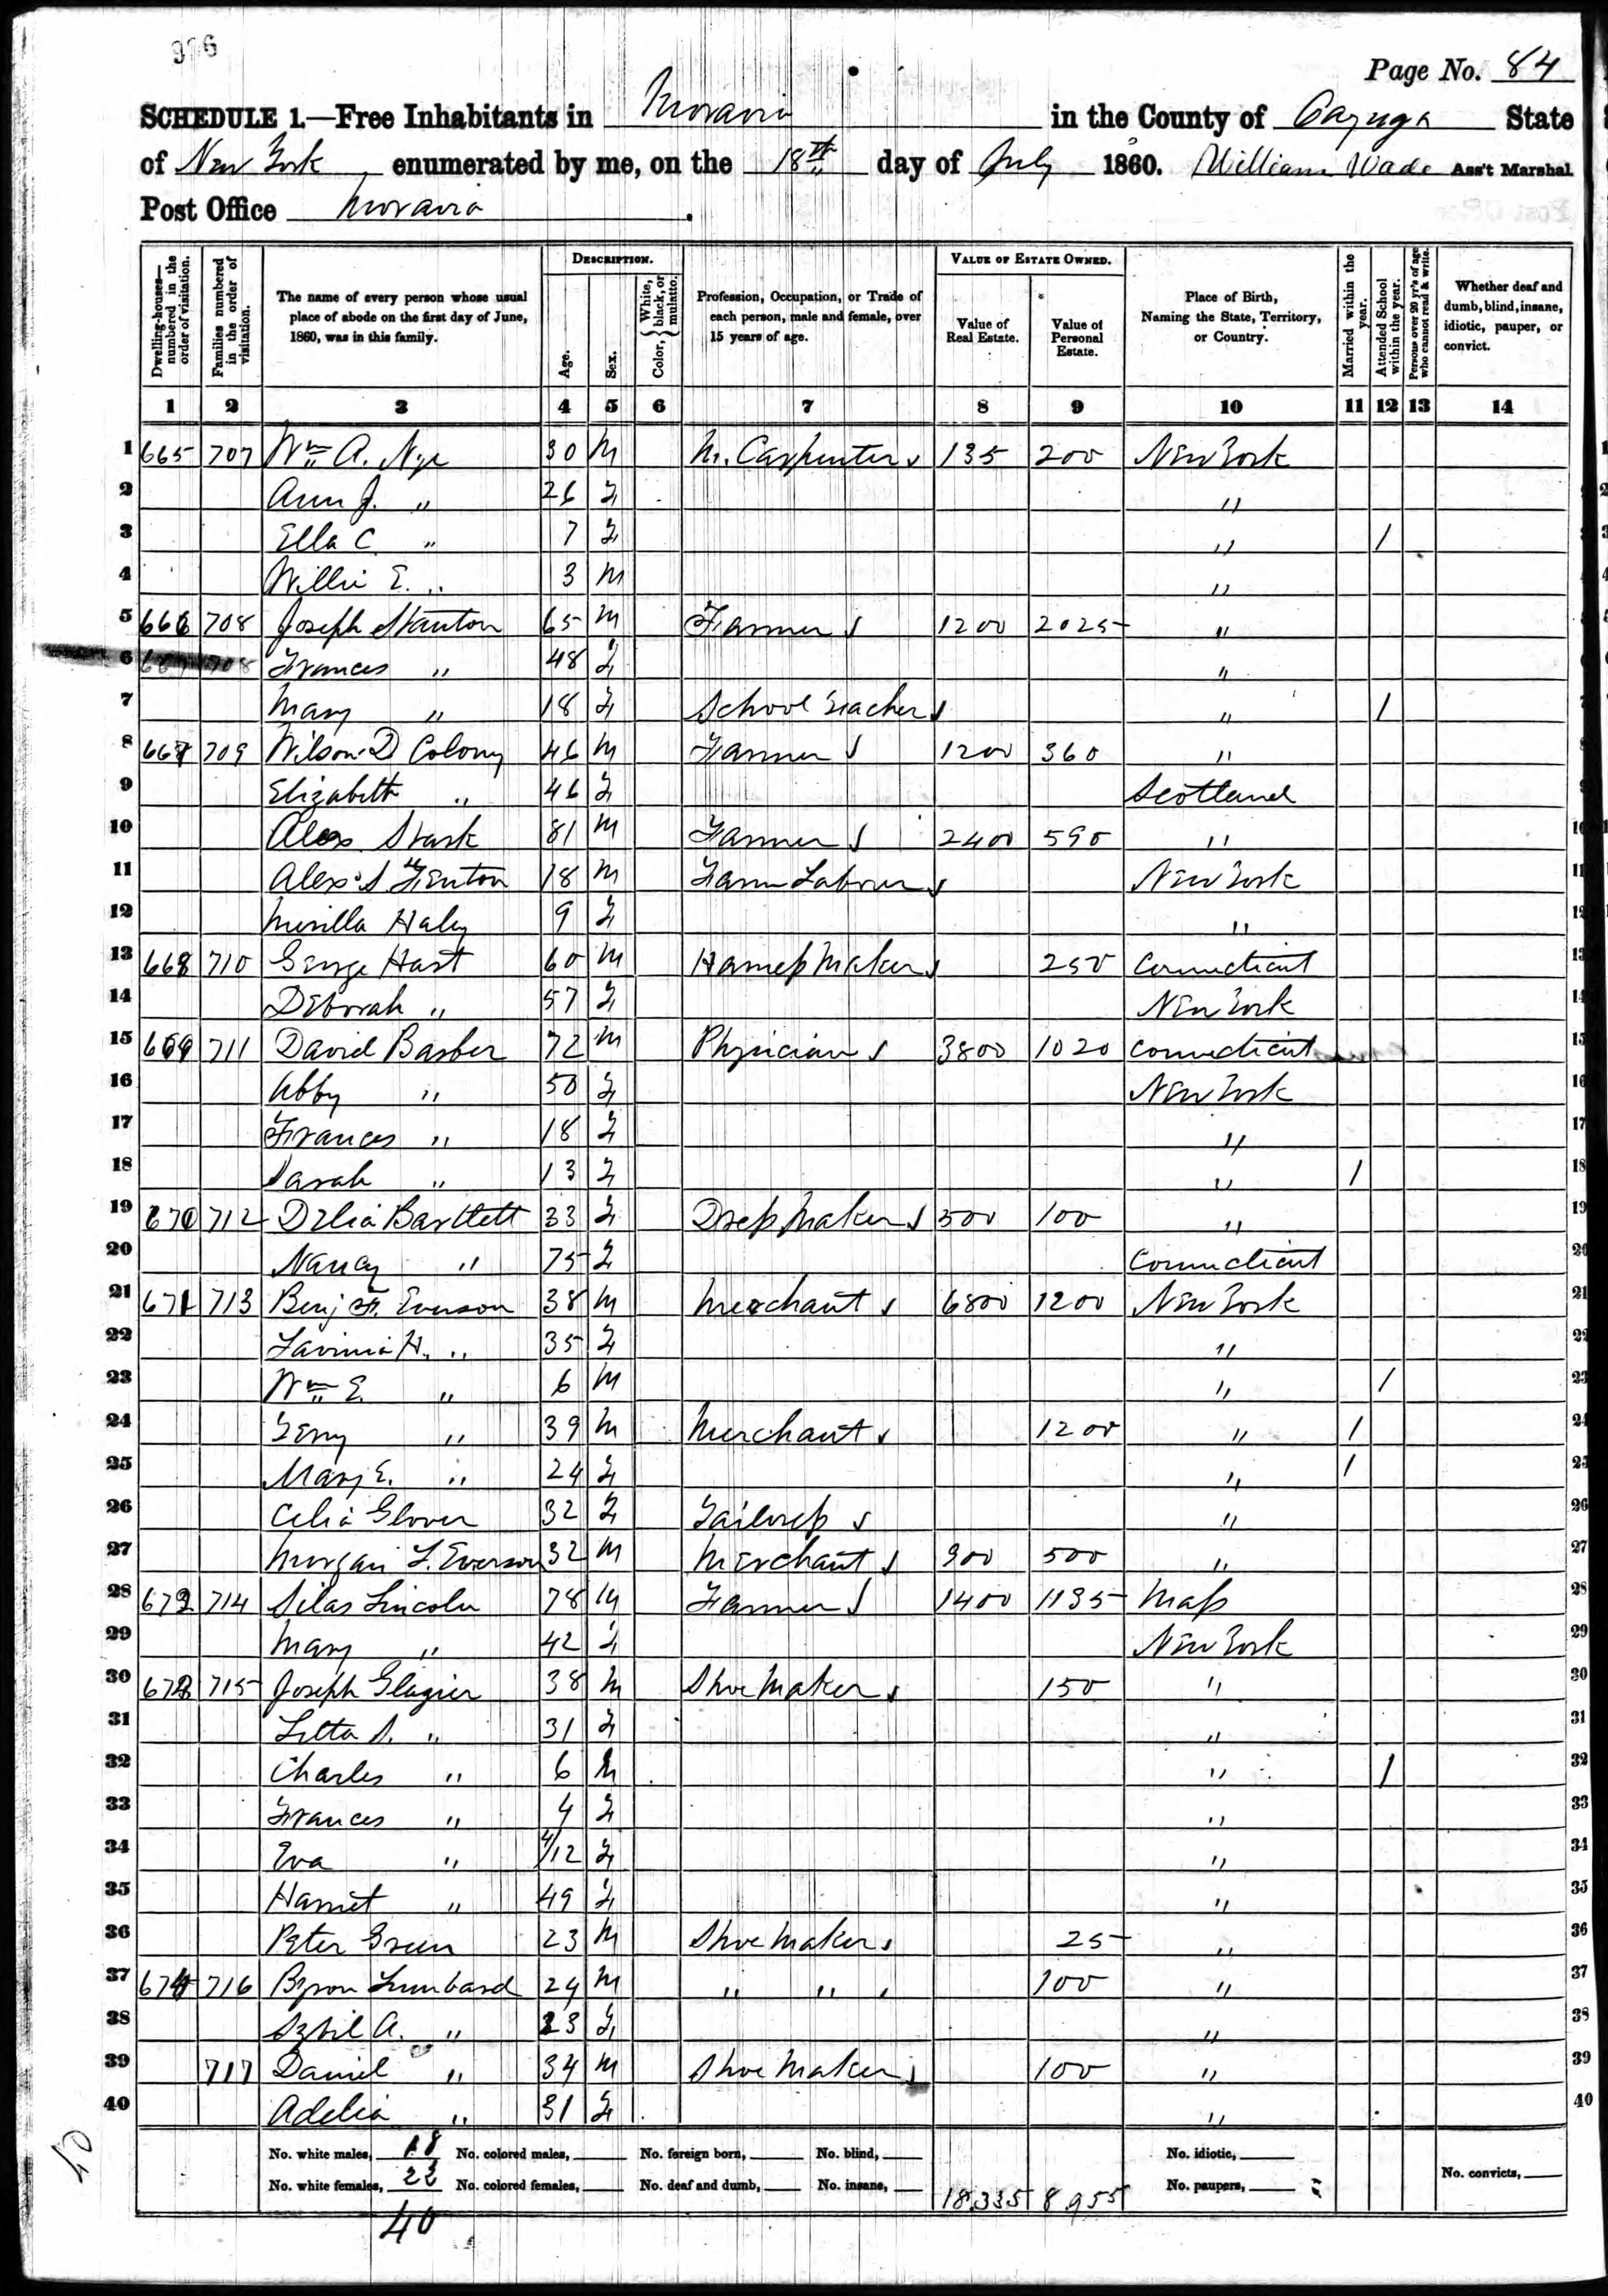 926
Page No. 84
SCHEDULE 1.—Free Inhabitants in Moravia in the County of Cayuga State
of New York enumerated by me, on the 18th day of July 1860. William Wade Ass't Marshal.
Post Office Moravia.
Dwelling-houses—numbered in the order of visitation.
Families numbered in the order of visitation.
The name of every person whose usual place of abode on the first day of June, 1860, was in this family.
DESCRIPTION.
Age.
Sex.
Color, White, black, or mulatto.
Profession, Occupation, or Trade of each person, male and female, over 15 years of age.
VALUE OF ESTATE OWNED.
Value of Real Estate.
Value of Personal Estate.
Place of Birth, Naming the State, Territory, or Country.
Married within the year.
Attended School within the year.
Persons over 20 y'rs of age who cannot read & write.
Whether deaf and dumb, blind, insane, idiotic, pauper, or convict.
1 2 3 4 5 6 7 8 9 10 11 12 13 14
1 665 707 Wm A. Nye 30 M M. Carpenter 135 200 New York
2 Ann J. " 26 F "
3 Ella C. " 7 F " /
4 Willie E. " 3 M "
5 666 708 Joseph Stanton 65 M Farmer 1200 2025 "
6 708 Frances " 48 F "
7 Mary " 18 F School Teacher " /
8 667 709 Wilson D Colony 46 M Farmer 1200 360 "
9 Elizabeth " 46 F Scotland
10 Alex. Stark 81 M Farmer 2400 590 "
11 Alex. S Fenton 18 M Farm Laborer New York
12 Haley 9 F "
13 668 710 George Hart 60 M Harness Maker 250 Connecticut
14 Deborah " 57 F New York
15 669 711 David Barber 72 M Physician 3800 1020 Connecticut
16 Abby " 50 F New York
17 Frances " 18 F "
18 Sarah " 13 F " /
19 670 712 Delia Bartlett 33 F Dress Maker 500 100 "
20 Nancy " 75 F Connecticut
21 671 713 Benj F. Everson 38 M Merchant 6800 1200 New York
22 Lavinia H. " 35 F "
23 Wm E. " 6 M " /
24 Terry " 39 M Merchant 1200 " /
25 Mary E. " 24 F " /
26 Celia Glover 32 F Tailoress "
27 Morgan L. Everson 32 M Merchant 900 500 "
28 672 714 Silas Lincoln 78 M Farmer 1400 1135 Mass
29 Mary " 42 F New York
30 673 715 Joseph Glazier 38 M Shoe Maker 150 "
31 Letta S. " 31 F "
32 Charles " 6 M " /
33 Frances " 4 F "
34 Eva " 4/12 F "
35 Harriet " 49 F "
36 Peter Green 23 M Shoe Maker 25 "
37 674 716 Byron Lumbard 24 M " " 100 "
38 Sybil A. " 23 F "
39 717 Daniel " 34 M Shoe Maker 100 "
40 Adelia " 31 F "
No. white males, 18 No. colored males, No. foreign born, No. blind, No. idiotic,
No. white females, 22 No. colored females, No. deaf and dumb, No. insane, 18,335 8,955 No. paupers, No. convicts,
40
40